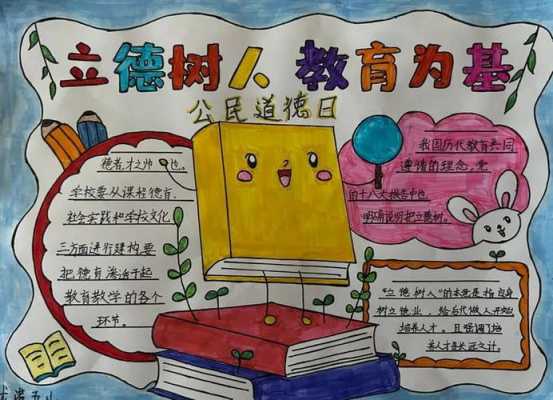 立德树人 教育为基
公民道德日
德者才之帅也,
学校要从课程德育.
社会实践和学校文化
三方面进行建构要
把德育渗治于起
教育教学的各个
环节。
我国历代教育共同
遵循的理念,党
的十八大报告中也
明确说明把立德树。
"立德树人"的本意是指自身
树立德业,给后代做人开始
培养人才。且强调了培
养人才是长远之计。